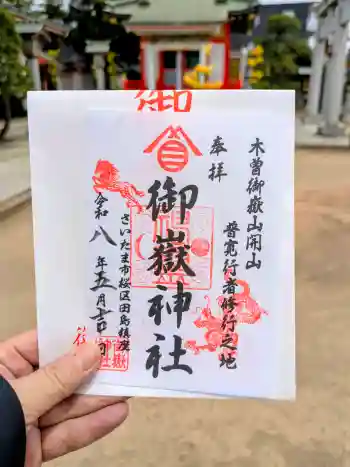 木曽御嶽山開山
普寛行者修行之地
奉拝
御嶽神社
さいたま市桜区田島鎮座
令和八年五月吉日